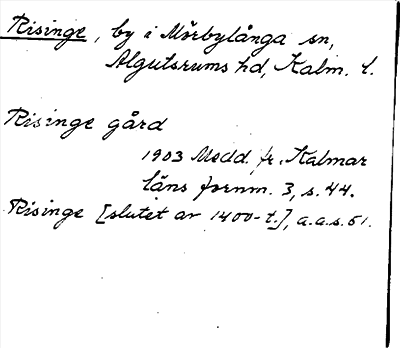 Risinge, by i Mörbylånga sn,
Algutsrums hd, Kalm. l.
Risinge gård
1903 Medd. fr. Kalmar
läns fornm. 3, s. 44.
Risinge [slutet av 1400-t.], a.a.s. 51.